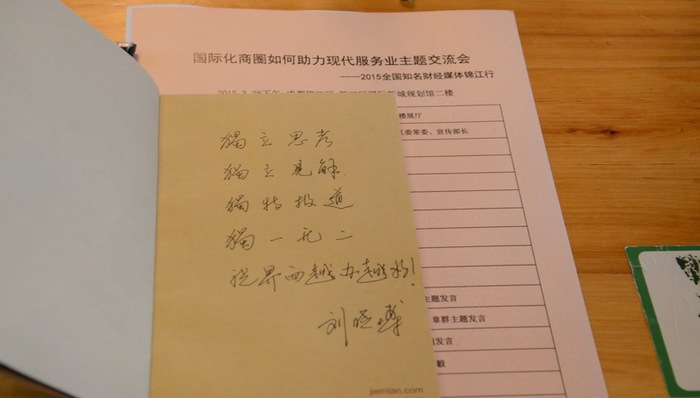 国际化商圈如何助力现代服务业主题交流会
——2015全国知名财经媒体锦江行
规划馆二楼
楼展厅
区委常委、宣传部长
主题发言
章群主题发言
发言
毅
獨立思考
獨立見解
獨特报道
獨一无二
祝界面越办越好!
刘晓博
jiemian.com